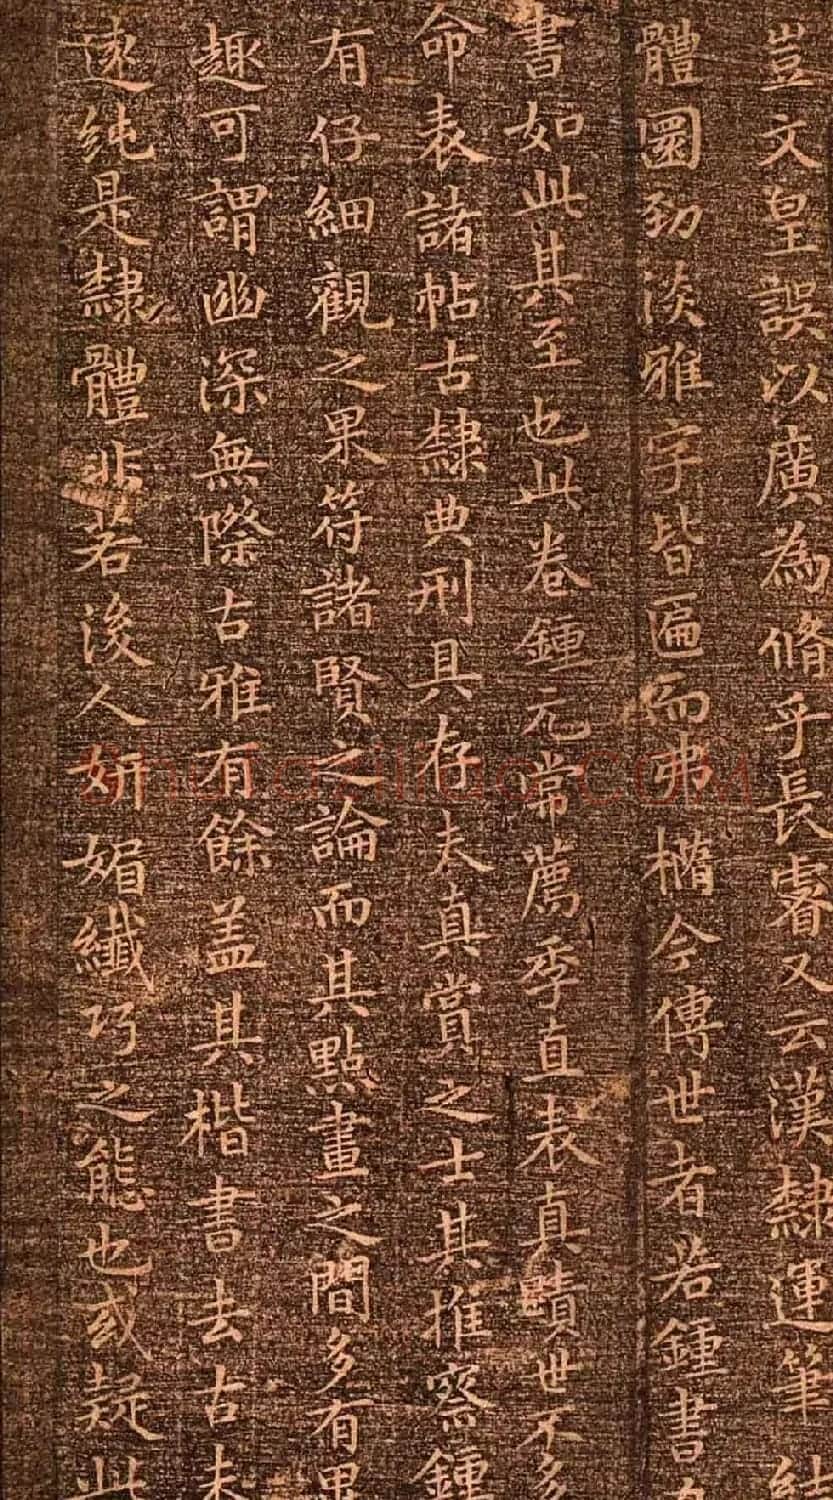 豈文皇誤以廣為脩乎長睿又云漢隸運筆結
體圜勁淡雅字皆匾而弗橢今傳世者若鍾書力
書如此其至也此卷鍾元常薦季直表真蹟世不多
命表諸帖古隸典刑具存夫真賞之士其推察鍾
有仔細觀之果符諸賢之論而其點畫之間多有異
趣可謂幽深無際古雅有餘盖其楷書去古未
遠純是隸體非若後人妍媚纖巧之態也或疑此